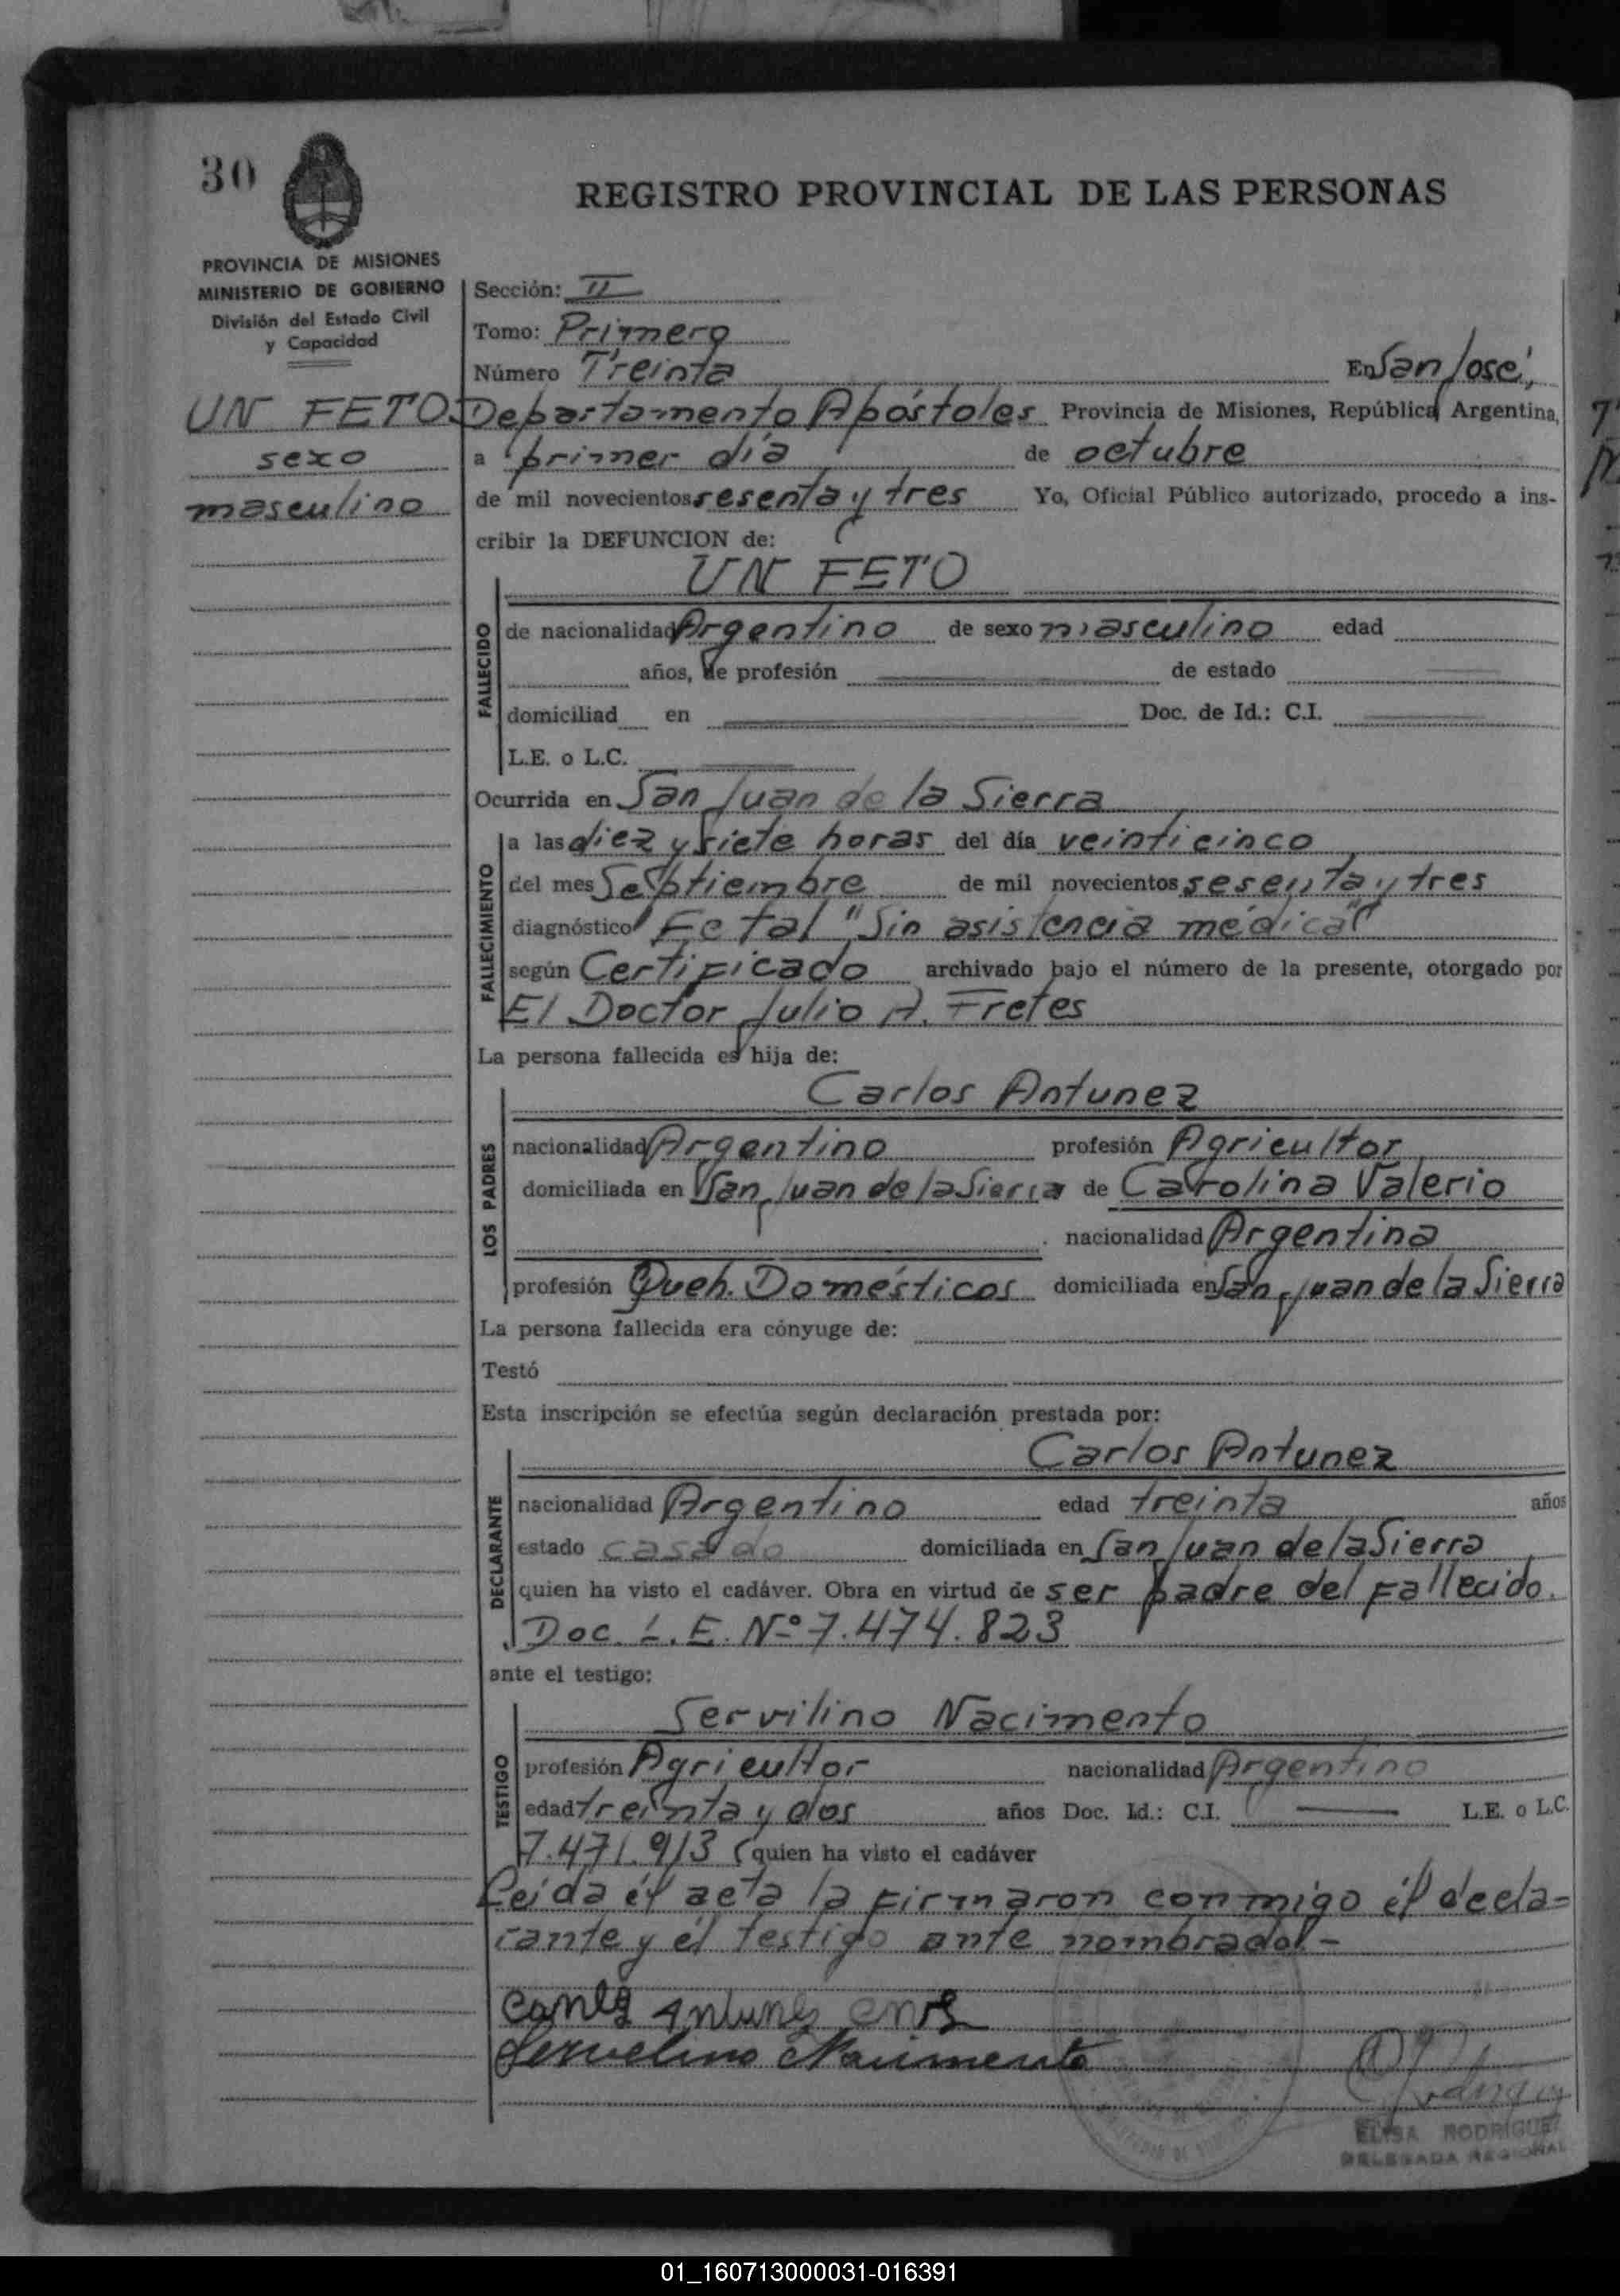 30
REGISTRO PROVINCIAL DE LAS PERSONAS
PROVINCIA DE MISIONES
MINISTERIO DE GOBIERNO
División del Estado Civil
y Capacidad
UN FETO
sexo
masculino
Sección: II
Tomo: Primero
Número Treinta En San José,
Departamento Apóstoles Provincia de Misiones, República Argentina,
a primer día de octubre
de mil novecientos sesenta y tres Yo, Oficial Público autorizado, procedo a ins-
cribir la DEFUNCION de:
UN FETO
FALLECIDO
de nacionalidad Argentino de sexo masculino edad
años, de profesión de estado
domiciliad en Doc. de Id.: C.I.
L.E. o L.C.
Ocurrida en San Juan de la Sierra
FALLECIMIENTO
a las diez y siete horas del día veinticinco
del mes Septiembre de mil novecientos sesenta y tres
diagnóstico Fetal "Sin asistencia médica"
según Certificado archivado bajo el número de la presente, otorgado por
El Doctor Julio A. Fretes
La persona fallecida es hija de:
Carlos Antunez
LOS PADRES
nacionalidad Argentino profesión Agricultor
domiciliada en San Juan de la Sierra de Carolina Valerio
nacionalidad Argentina
profesión Queh. Domésticos domiciliada en San Juan de la Sierra
La persona fallecida era cónyuge de:
Testó
Esta inscripción se efectúa según declaración prestada por:
Carlos Antunez
DECLARANTE
nacionalidad Argentino edad treinta años
estado casado domiciliada en San Juan de la Sierra
quien ha visto el cadáver. Obra en virtud de ser padre del fallecido.
Doc. L.E. Nº 7.474.823
ante el testigo:
Servilino Nacimento
TESTIGO
profesión Agricultor nacionalidad Argentino
edad treinta y dos años Doc. Id.: C.I. L.E. o L.C.
7.471.913 quien ha visto el cadáver
Leida él acta la firmaron conmigo él decla=
rante y él testigo ante nombrado.-
Servelino Nacimento
ELISA RODRIGUEZ
DELEGADA REGIONAL
01_160713000031-016391